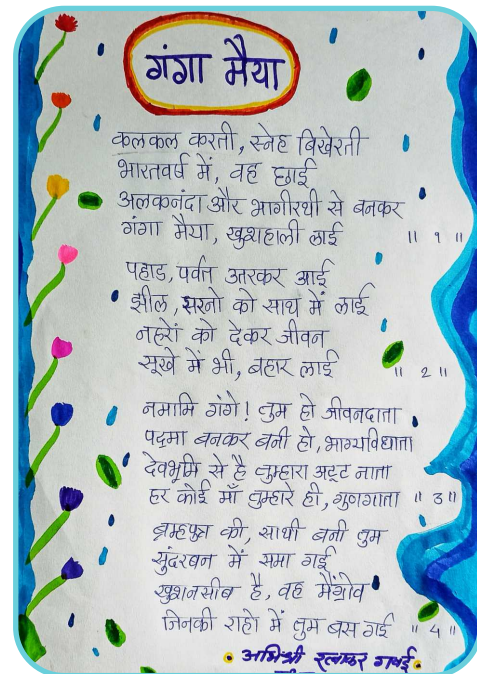 गंगा मैया
कलकल करती, स्नेह बिखेरती
भारतवर्ष में, वह छाई
अलकनंदा और भागीरथी से बनकर
गंगा मैया, खुशहाली लाई ॥ १ ॥
पहाड, पर्वत उतरकर आई
झील, झरनो को साथ में लाई
नहरों को देकर जीवन
सूखे में भी, बहार लाई ॥ 2 ॥
नमामि गंगे! तुम हो जीवनदाता
पद्मा बनकर बनी हो, भाग्यविधाता
देवभूमि से है तुम्हारा अटूट नाता
हर कोई माँ तुम्हारे ही, गुणगाता ॥ 3 ॥
ब्रम्हपुत्र की, साथी बनी तुम
सुंदरबन में समा गई
खुशनसीब है, वह मैंग्रोव
जिनकी राहो में तुम बस गई ॥ 4 ॥
अभिश्री रत्नाकर गवई